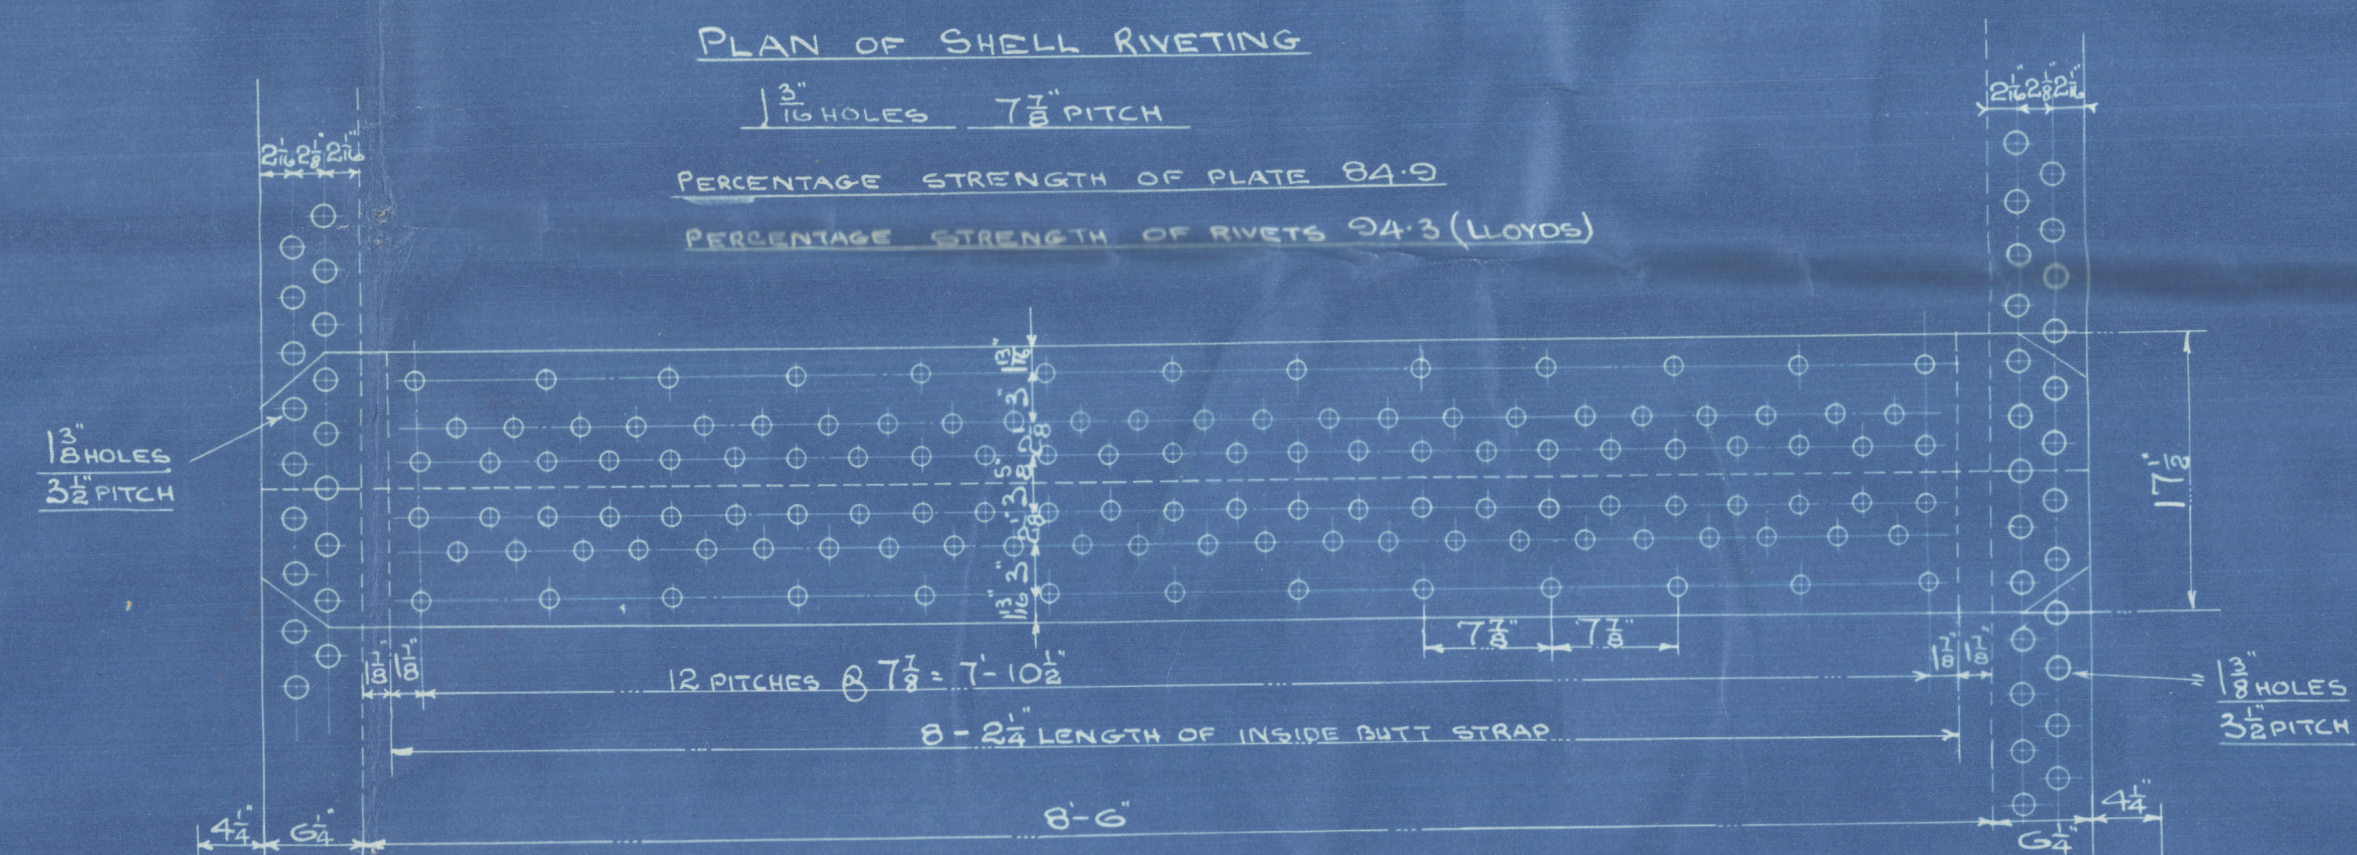 PLAN OF SHELL RIVETING
1 3/16" HOLES 7 7/8" PITCH
PERCENTAGE STRENGTH OF PLATE 84.9
PERCENTAGE STRENGTH OF RIVETS 94.3 (LLOYDS)
2 1/16" 2 1/8" 2 1/16"
2 1/16" 2 1/8" 2 1/16"
1 3/8" HOLES
3 1/2" PITCH
1 13/16" 3" 2 1/8" 3 5/8" 2 1/8" 3" 1 13/16"
17 1/2"
7 7/8" 7 7/8"
1 7/8" 1 7/8"
12 PITCHES @ 7 7/8 = 7'-10 1/2"
1 7/8" 1 7/8"
= 1 3/8" HOLES
3 1/2" PITCH
8 - 2 1/4" LENGTH OF INSIDE BUTT STRAP
4 1/4" 6 1/4" 8'-6" 6 1/4" 4 1/4"